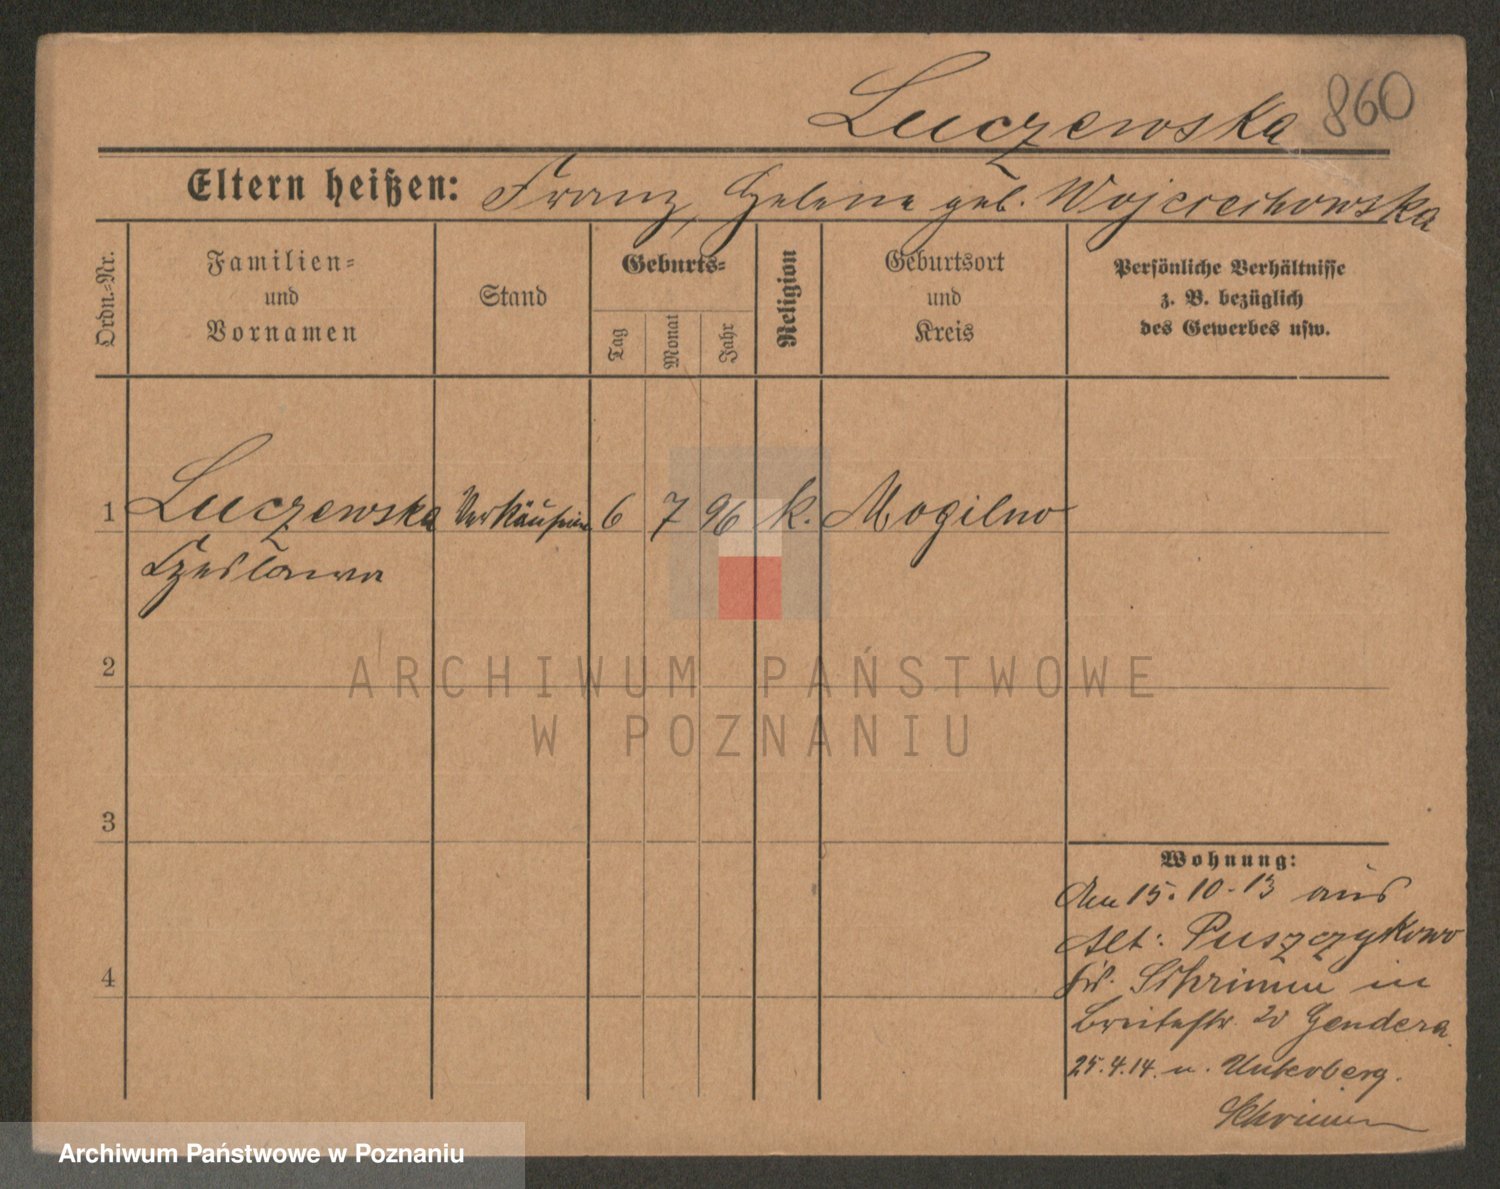 Luczewska 860
Eltern heißen: Franz, Helene geb. Wojciechowska
Ordn.-Nr.
Familien-
und
Vornamen
Stand
Geburts-
Tag
Monat
Jahr
Religion
Geburtsort
und
Kreis
Persönliche Verhältnisse
z. B. bezüglich
des Gewerbes usw.
1 Luczewska Verkäuferin 6 7 96 k. Mogilno
Czeslawa
2
3
4
Wohnung:
Am 15.10.13 aus
Alt: Puszczykowo
Kr. Schrimm in
Breitestr. 20 Gendera
25.4.14. n. Unterberg.
Schrimm
ARCHIWUM PAŃSTWOWE
W POZNANIU
Archiwum Państwowe w Poznaniu